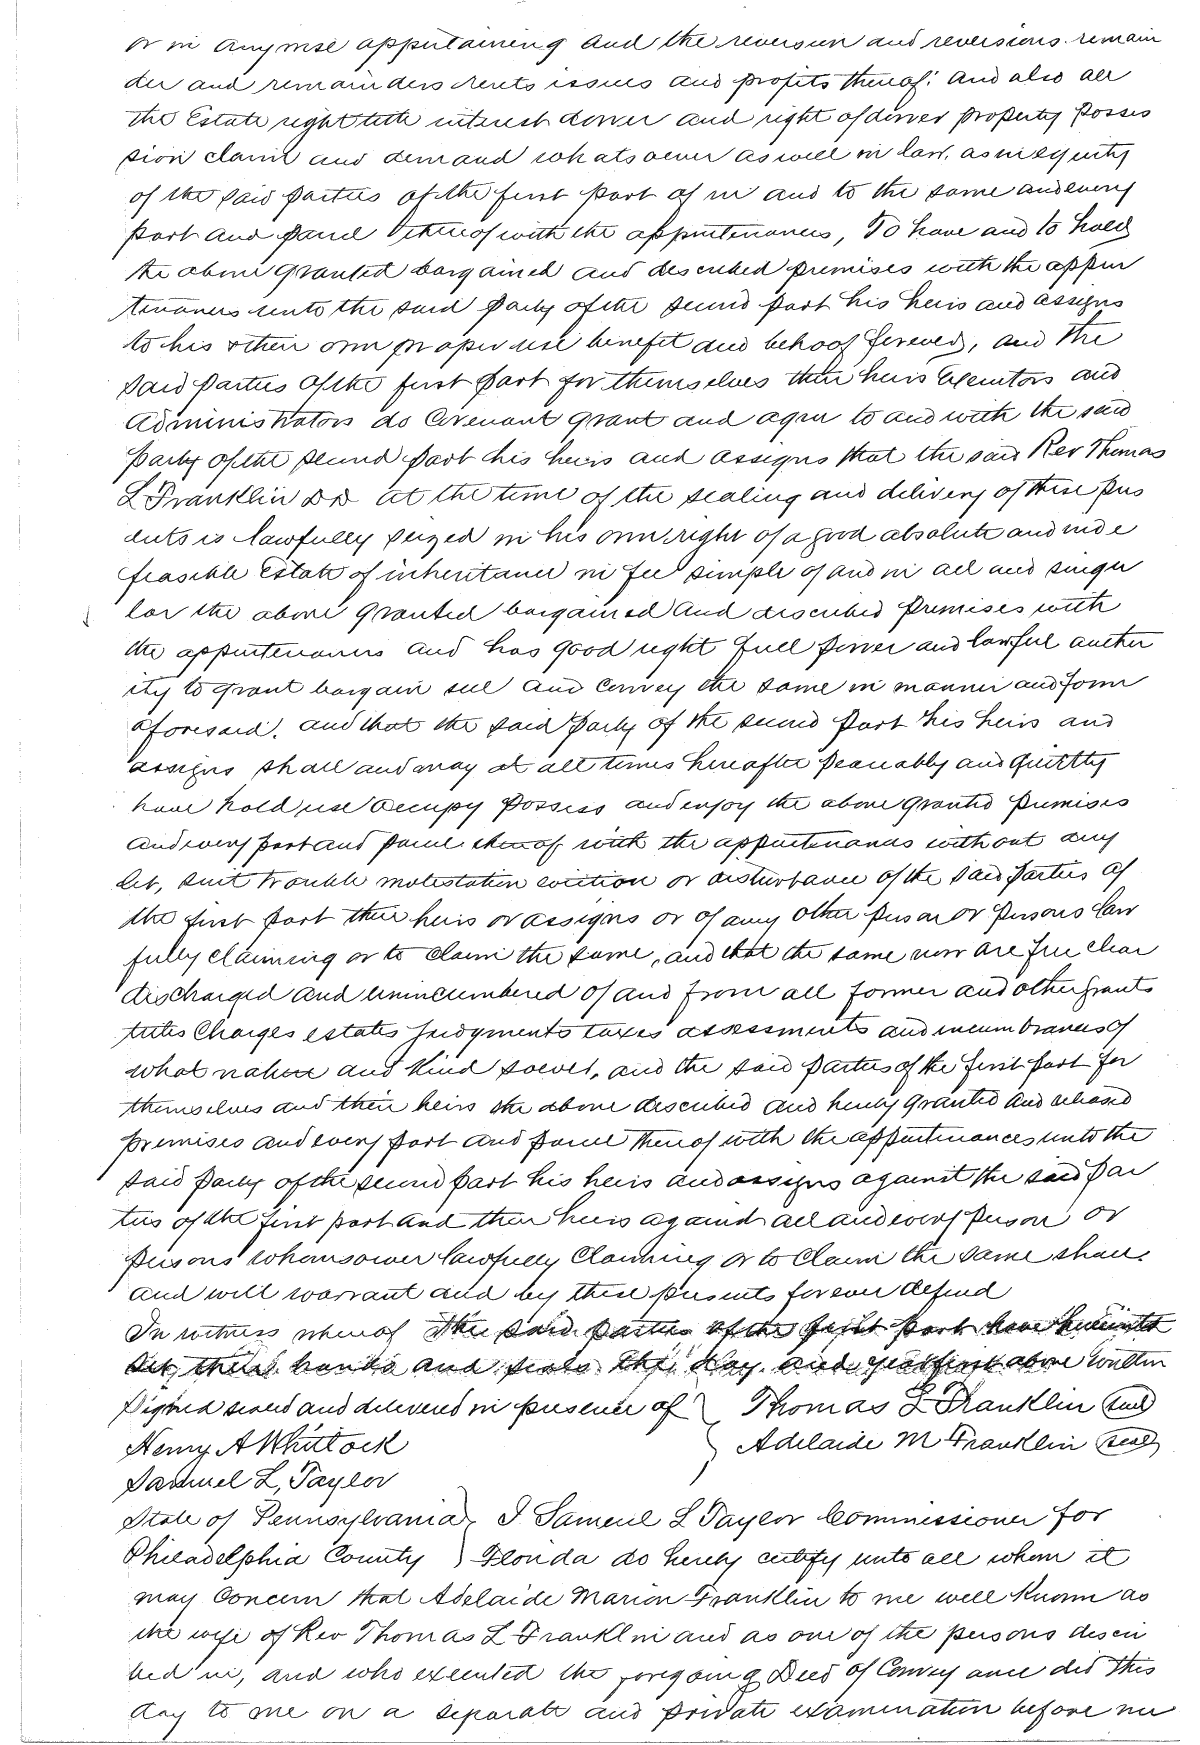 or in anywise appertaining and the reversion and reversions remain
der and remainders rents issues and profits thereof: and also all
the Estate right title interest dower and right of dower property posses
sion claim and demand whatsoever as well in law, as in equity
of the said parties of the first part of in and to the same and every
part and parcel thereof with the appurtenances, To have and to hold
the above granted bargained and described premises with the appur
tenances unto the said party of the second part his heirs and assigns
to his & their own proper use benefit and behoof forever, and the
said parties of the first part for themselves their heirs Executors and
Administrators do Covenant grant and agree to and with the said
party of the second part his heirs and assigns that the said Rev Thomas
L Franklin DD at the time of the sealing and delivery of these pres
ents is lawfully seized in his own right of a good absolute and inde
feasible Estate of inheritance in fee simple of and in all and singu
lar the above granted bargained and described premises with
the appurtenances and has good right full power and lawful author
ity to grant bargain sell and convey the same in manner and form
aforesaid. and that the said party of the second part his heirs and
assigns shall and may at all times hereafter peaceably and quietly
have hold use occupy possess and enjoy the above granted premises
and every part and parcel thereof with the appurtenances without any
let, suit trouble molestation eviction or disturbance of the said parties of
the first part their heirs or assigns or of any other person or persons law
fully claiming or to claim the same, and that the same now are free clear
discharged and unincumbered of and from all former and other grants
titles charges estates judgments taxes assessments and incumbrances of
what nature and kind soever, and the said parties of the first part for
themselves and their heirs the above described and hereby granted and released
premises and every part and parcel thereof with the appurtenances unto the
said party of the second part his heirs and assigns against the said par
ties of the first part and their heirs against all and every person or
persons whomsoever lawfully claiming or to claim the same shall
and will warrant and by these presents forever defend
In witness whereof the said parties of the first part have hereunto
set their hands and seals the day and year first above written
Signed sealed and delivered in presence of } Thomas L Franklin (seal)
Henry A Whitlock } Adelaide M Franklin (seal)
Samuel L, Taylor
State of Pennsylvania } I Samuel L Taylor Commissioner for
Philadelphia County } Florida do hereby certify unto all whom it
may concern that Adelaide Marion Franklin to me well known as
the wife of Rev Thomas L Franklin and as one of the persons descri
bed in, and who executed the foregoing Deed of Convey ance did this
day to me on a separate and private examination before me